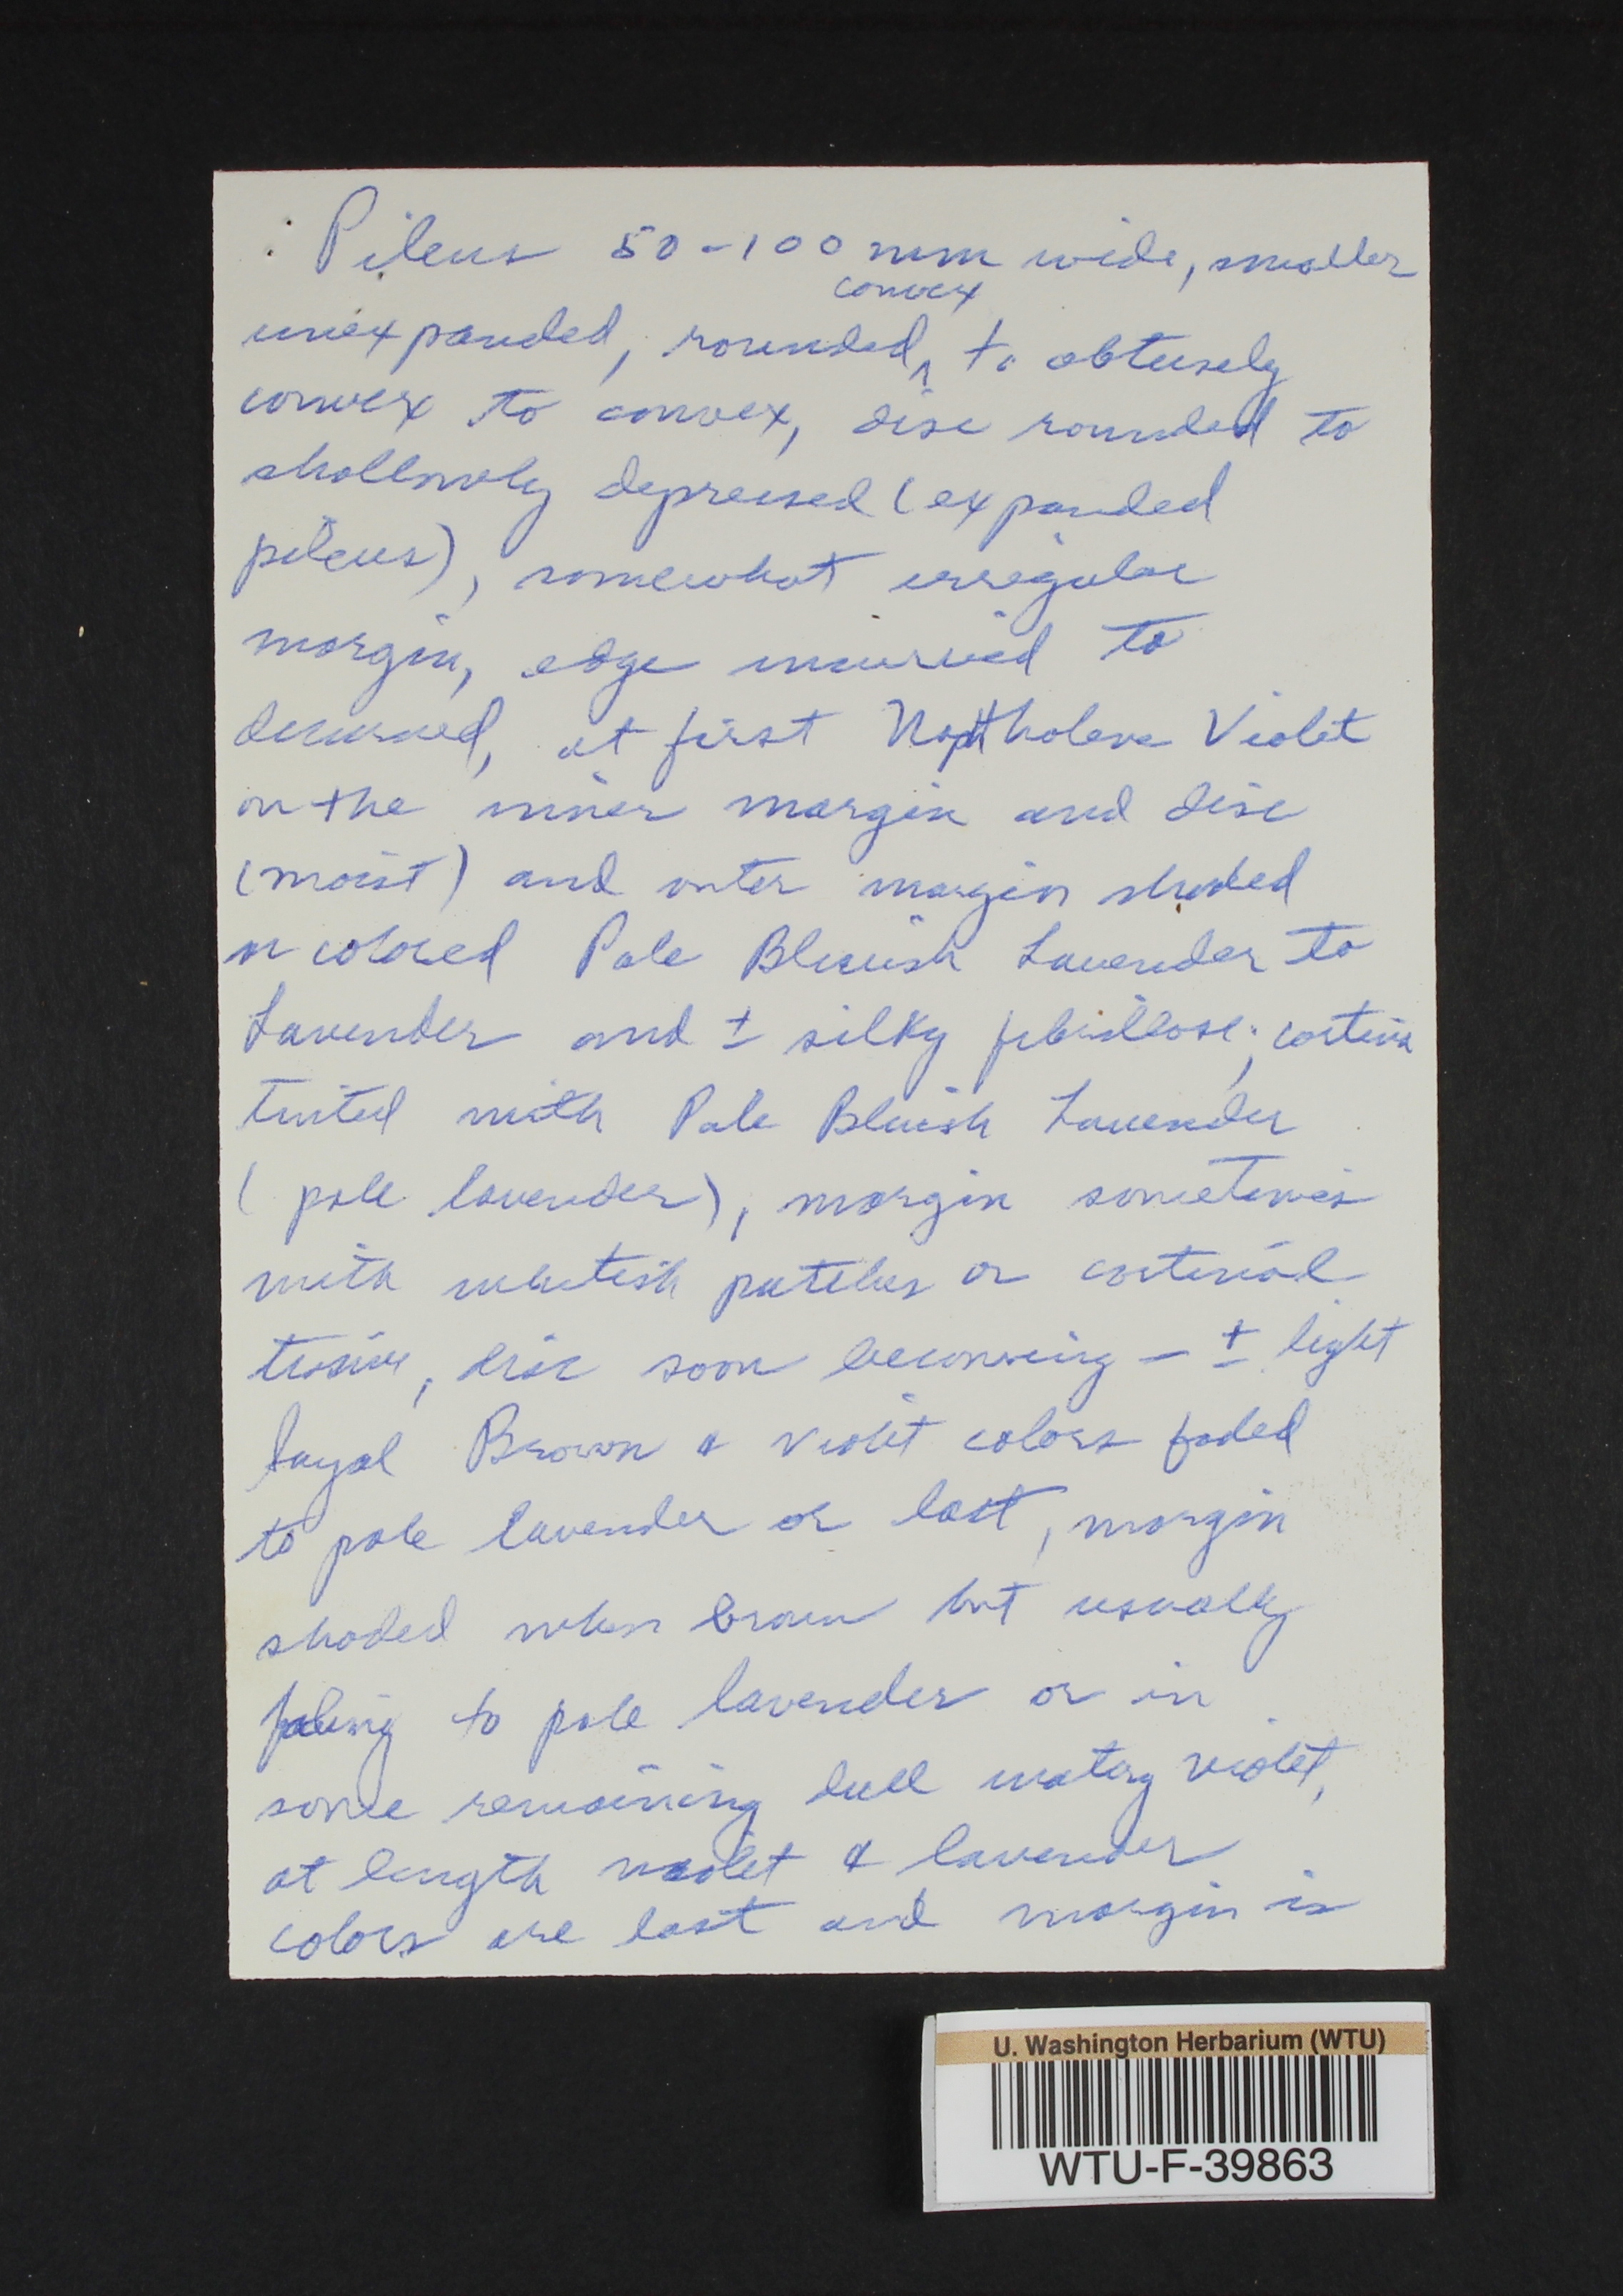 Pileus 50-100 mm wide, smaller
convex
unexpanded, rounded ‸ to obtusely
convex to convex, disc rounded to
shallowly depressed (expanded
pileus), somewhat irregular
margin, edge incurved to
decurved, at first Naphthalene Violet
on the inner margin and disc
(moist) and outer margin shaded
or colored Pale Bluish Lavender to
Lavender and ± silky fibrillose; cortina
tinted with Pale Bluish Lavender
(pale lavender), margin sometimes
with whitish patches or cortinal
tissue, disc soon becoming - ± light
Fayal Brown & violet colors faded
to pale lavender or lost, margin
shaded when brown but usually
fading to pale lavender or in
some remaining dull watery violet,
at length violet & lavender
colors are lost and margin is
U. Washington Herbarium (WTU)
WTU-F-39863